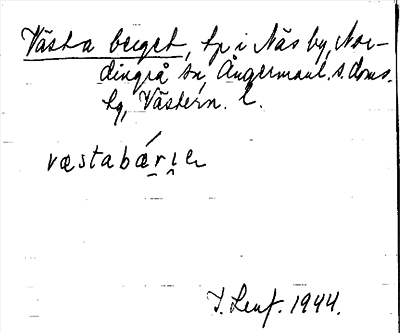 Västa berget, lp i Näs by, Nor-
dingrå sn, Ångermanl. s. doms.
hg, Västern. l.
væstabárıe
J. Lenf. 1944.